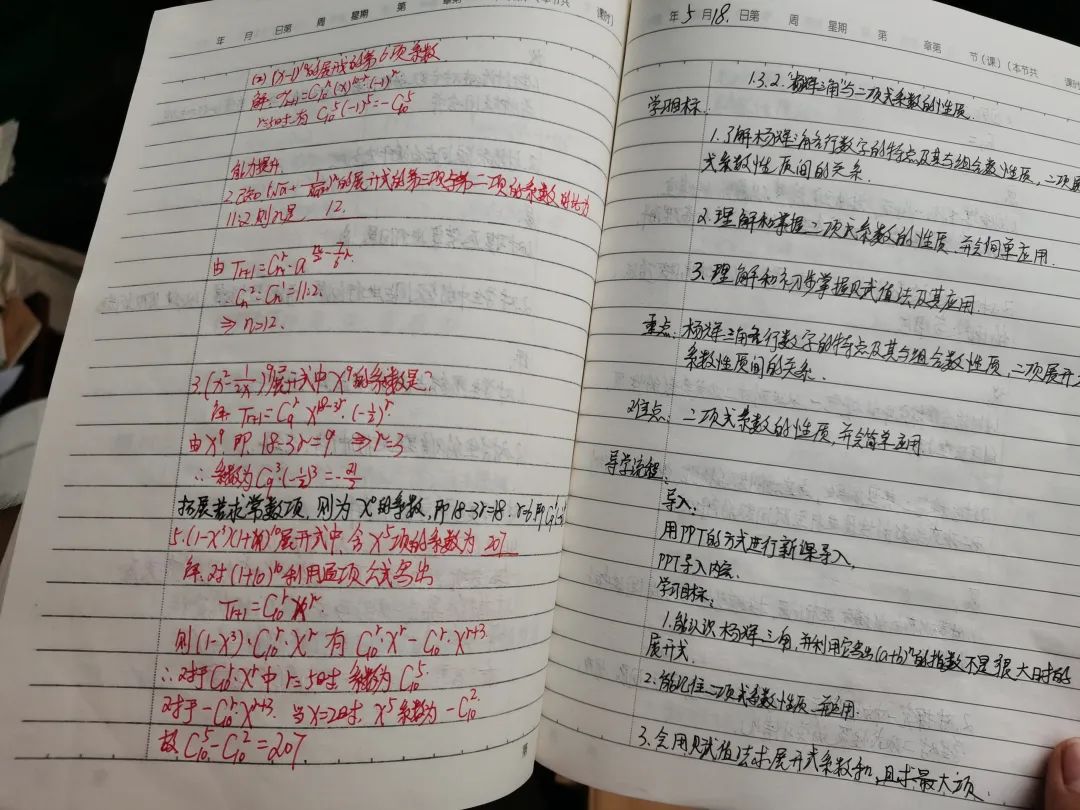 年 月 日第 周 星期 第 章第 (本节共 课时)
(2) (x-1)^10的展开式的第6项系数
解: T_{r+1}=C_10^r (x)^{10-r}·(-1)^r
r=5时 有 C_10^5(-1)^5=-C_10^5
能力提升.
的展开式的第三项与第二项的系数的比为
11:2 则n是 12.
由 T_{r+1}=C_n^r·a
∴ C_n^2:C_n^1=11:2.
⇒ n=12.
3.(x^2-1/2x)^9展开式中x^9的系数是?
解 T_{r+1}=C_9^r x^{18-3r}·(-1/2)^r
由x^9, 即 18-3r=9 ⇒ r=3
∴系数为 C_9^3·(-1/2)^3=-21/2
拓展若求常数项, 则为x^0的系数, 即18-3r=18. r=6 即
5.(1-x^3)(1+x)^10展开式中, 含x^5项的系数为 207
解:对(1+x)^10利用通项公式写出
T_{r+1}=C_10^r x^r.
则(1-x^3)·C_10^r·x^r 有 C_10^r·x^r-C_10^r·x^{r+3}
∴对于C_10^r·x^r中 r=5时 系数为 C_10^5.
对于-C_10^r·x^{r+3}. 当x=2时. x^5系数为-C_10^2.
故C_10^5-C_10^2=207
第
年 5 月 18. 日第 周 星期 第 章第 节(课)(本节共 课时
1.3.2."杨辉三角"与二项式系数的性质.
学习目标:
1.了解杨辉三角各行数字的特点及其与组合数性质,二项展
式系数性质间的关系.
2.理解和掌握二项式系数的性质,并会简单应用.
3.理解和初步掌握赋值法及其应用.
重点: 杨辉三角各行数字的特点及其与组合数性质,二项展开式
系数性质间的关系.
难点: 二项式系数的性质,并会简单应用.
导学流程:
导入.
用PPT的方式进行新课导入.
PPT导入内容.
学习目标:
1.能认识杨辉三角,并利用它写出(a+b)^n的指数不是很大时的
展开式.
2.能记住二项式系数性质并应用.
3.会用赋值法求展开式系数和,且求最大项.